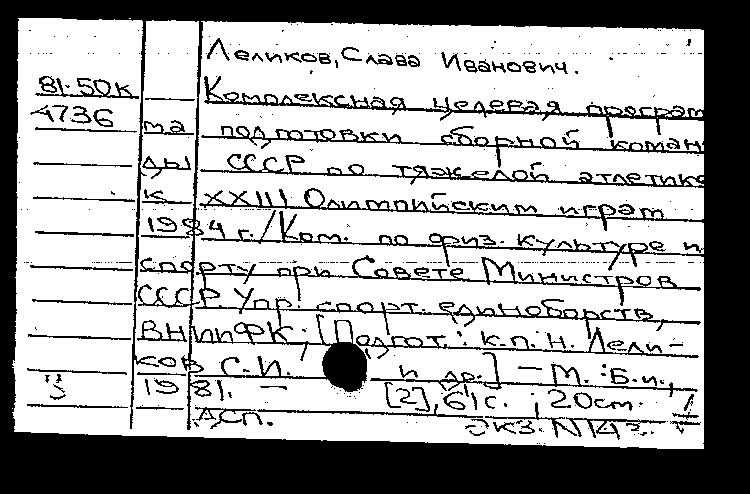 Леликов, Слава Иванович.
81-50к
4736
Комплексная целевая програм
ма подготовки сборной коман
ды СССР по тяжелой атлетике
к XXIII Олимпийским играм
1984 г. / Ком. по физ. культуре и
спорту при Совете Министров
СССР. Упр. спорт. единоборств,
ВНИИФК; [Подгот.: к.п.н. Лели-
ков С.И. и др.] - М.: Б.и.,
1981. - [2], 61 с. ; 20 см.
ДСП. Экз. N 142.